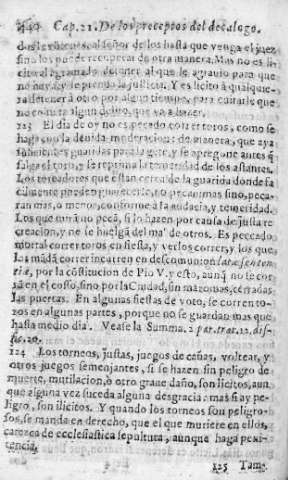 440 Cap. 21. De los preceptos del decalogo.
dar las ñores, al señor de los hasta que venga el juez
sino los puede recuperar de otra manera. Mas no es li-
cito al agravado detener al que le agravio para que
no haya, y le prenda la justicia. Y es licito à qualquie-
ra detener à otro por algun tiempo, para evitarle que
no cometa algun delito, que va à hacer.
123 El dia de oy no es pecado correr toros, como se
haga con la devida moderacion: de manera, que aya
suficientes guardas para la gente, y se apregone antes q̃
salga el toro, y se reprima la temeridad de los
Los toreadores que estàn cerca de la guarida donde fa-
cilmente puedẽ guarecerse, no pecan mas sino, peca-
ran mas, o menos, conforme à la audacia, y temeridad.
Los que mirã no pecã, si lo hazen por causa de justa re-
creacion, y no se huelgã del mal de otros. Es peccado
mortal correr toros en fiesta, y verlos correr, y los que
las mãdã correr incurren en descomunion latæ senten-
tiæ, por la cõstitucion de Pio V. y esto, aunq̃ no se cor-
ran en el cosso, sino por la Ciudad, sin maromas, cerradas
las puertas. En algunas fiestas de voto, se corren to-
ros en algunas partes, porque no se guardan mas que
hasta medio dia. Vease la Summa. 2 par. trat. 12. dif-
fic. 20.
124 Los torneos, justas, juegos de cañas, voltear, y
otros juegos semejantes, si se hazen sin peligro de
muerte, mutilacion, ò otro grave daño, son licitos, aun
que alguna vez suceda alguna desgracia: mas si ay pe-
ligro, son ilicitos. Y quando los torneos son peligro-
sos, se manda en derecho, que el que muriere en ellos,
carezca de ecclesiastica sepultura, aunque haga peni-
tencia.
125 Tam-